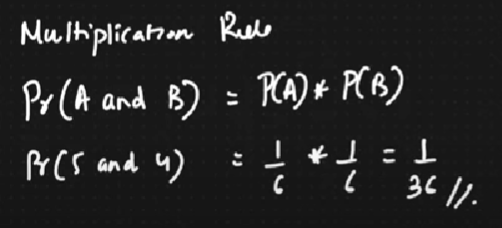 Multiplication Rule
Pr(A and B) = P(A) * P(B)
Pr(5 and 4) = 1/6 * 1/6 = 1/36 //.